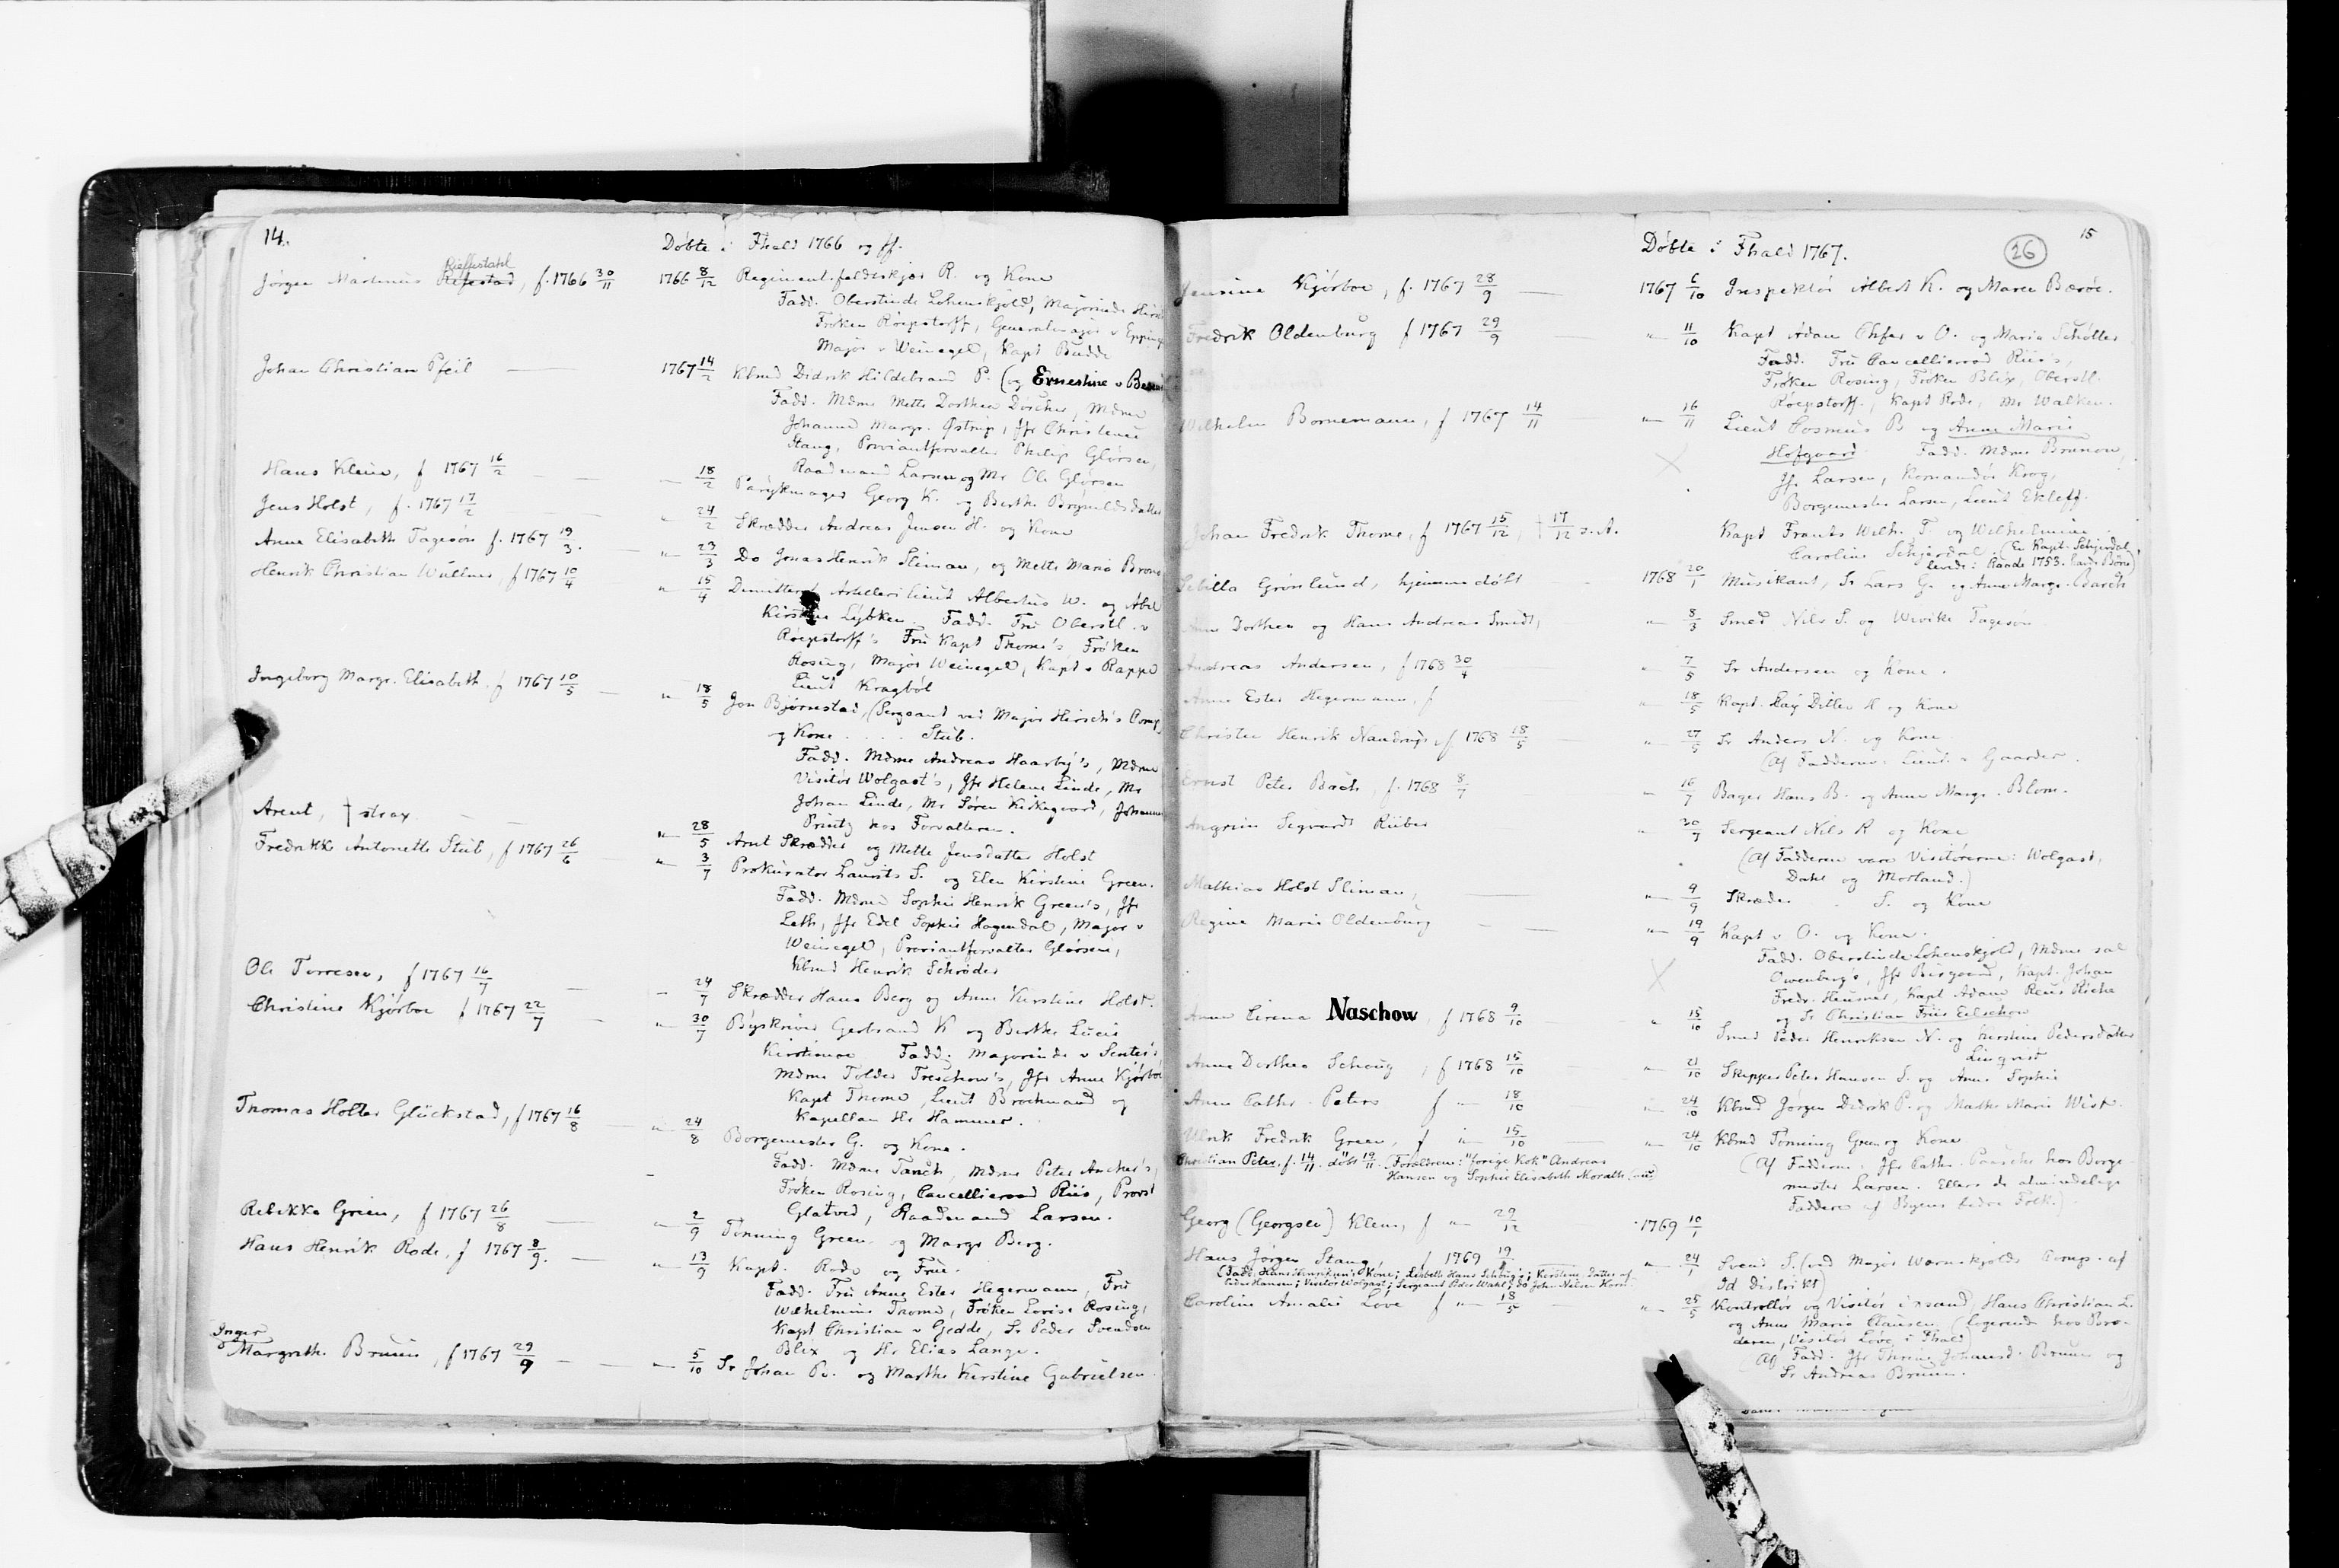 14.
Døbte i Fhald 1766 og ff.
Rieffestahl
Jørgen Martinus Rifestad, f. 1766 30/11 1766 8/12 Regimentsfeldtskjær R. og Kone
Fadd. Oberstinde Lohenskjold, Majorinde
Frøken Røepstorff, Generalmajor v
Major v Weinegel, Kapt Budde
Johan Christian Pfeil 1767 14/2 Kbmd Didrik Hildebrand P. (og Ernestine v
Fadd. Mdme Mette Dorthea Döscher, Mdme
Johanne Margr. Østrup, Jfr Christence
Stang, Proviantforvalter Philip Glørsen,
Raadmand Larsen og Mr Ole Glørsen
Hans Klein, f 1767 16/2 " 18/2 Parykmager Georg K. og Berthe Brynildsdatter
Jens Holst, f. 1767 17/2 " 24/2 Skrædder Andreas Jensen H. og Kone
Anne Elisabeth Tagesøn f. 1767 19/3. " 23/3 Do Jonas Henrik Sliman, og Mette Maria
Henrik Christian Wüllner, f 1767 10/4 " 15/4 Dimitteret Artilleri Lieut Albertus W. og Abel
Kirstine Lybken. Fadd. Fru Oberstl. v
Røepstorff's Fru Kapt Thome's, Frøken
Rosing, Major Weinegel, Kapt v Rappe
Lieut Kragbøl
Ingeborg Margr. Elisabeth f 1767 10/5 " 18/5 Jon Bjørnestad, (Sergeant ved Major Hirsch's Comp.
og Kone . . . . Stub.
Fadd. Mdme Andreas Haarby's, Mdme
Visitør Wolgast's, Jfr Helene Linde, Mr
Johan Linde, Mr Søren Kirkegaard, Johannes
Printz hos Forvalteren.
Arent, † strax " 28/5 Arnt Skrædder og Mette Jensdatter Holst
Fredrikke Antonette Stub, f 1767 26/6 " 3/7 Prokurator Laurits S. og Elen Kirstine Green.
Fadd. Mdme Sophie Henrik Green's, Jfr
Leth, Jfr Edel Sophie Hagendal, Major v
Weinegel, Proviantforvalter Glørsen,
Kbmd Henrik Schrøder
Ole Torresen, f 1767 16/7 " 24/7 Skrædder Hans Berg og Anne Kirstine Holst.
Christine Kjørboe f 1767 22/7 " 30/7 Byskriver Gerbrand K og Berthe Lucie
Fadd. Majorinde v
Mdme Tolder Treschow's, Jfr Anne Kjørboe
Kapt Thome, Lieut Brockmand og
Kapellan Hr Hammer.
Thomas Holter Glückstad, f 1767 16/8 " 24/8 Borgemester G. og Kone.
Fadd. Mdme Tanck, Mdme Peter Ancher's,
Frøken Rosing, Cancellieraad Riis, Provst
Glatved, Raadmand Larsen.
Rebekka Green, f 1767 26/8 " 2/9 Tønning Green og Margr Berg.
Hans Henrik Rode, f 1767 8/9. " 13/9 Kapt. Rode og Frue.
Fadd. Fru Anne Ester Hegermann, Fru
Wilhelmine Thome, Frøken Lovise Rosing,
Kapt Christian v Gedde, Sr Peder Svendsen
Blix og Hr Elias Lange.
Inger
Margrethe Bruun, f 1767 29/9 " 5/10 Sr Johan B. og Marthe Kirstine Gabrielsen
15
Døbte i Fhald 1767. 26
Jensine Kjørboe, f. 1767 28/9 1767 6/10 Inspektør Albert K. og Maren Bærøe.
Fredrik Oldenburg f 1767 29/9 " 11/10 Kapt Adam v O. og Maria Schøller
Fadd. Fru Cancellieraad Riis's,
Frøken Rosing, Frøken Blix, Oberstl.
Røepstorff, Kapt Rode, Mr Walken.
Wilhelm Bornemann, f 1767 14/11 " 16/11 Lieut Cosmus B og Anne Marie
Hofgaard. Fadd. Mdme Brunow,
Jfr Larsen, Komandør Krog,
Borgemester Larsen, Lieut Ekleff.
Johan Fredrik Thome, f 1767 15/12, † 17/12 s. A. Kapt Frants Wilh. T. og Wilhelmine
Caroline Schjerdal. (En Kapt. Schjerdal
levede i Raade 1753.
Sibilla Grønlund, hjemmedøbt 1768 20/1 Musikant, Sr Lars G. og Anne Margr.
Anne Dorthea og Hans Andreas Smidt, " 8/3 Smed Nils S. og Wivike Tagesøn
Andreas Andersen, f 1768 30/4 " 7/5 Sr Andersen og Kone.
Anne Ester Hegermann, f " 18/5 Kapt. Caÿ Ditlev H og Kone
Christen Henrik Nandrup f 1768 18/5 " 27/5 Sr Anders N. og Kone
(Af Fadderne: Lieut. v Gaarder.
Ernst Peter Bach, f. 1768 8/7 " 16/7 Bager Hans B. og Anne Margr. Blom.
Angrim Segvardt Rüber " 30/7 Sergeant Nils R og Kone
(Af Fadderne vare Visitørerne: Wolgast,
Dahl og Morland.)
Mathias Holst Sliman, " 9/9 Skræder . . S. og Kone
Regine Marie Oldenburg " 19/9 Kapt v O. og Kone.
Fadd. Oberstinde Lohenskjold, Mdme sal
Owenberg's, Jfr Birgaard, Kapt. Johan
Fredr. Heusner, Kapt Adam Reus Riche
og Sr Christian Friis Eilschow
Anne Sirena Naschow, f 1768 9/10 " 15/10 Smed Peder Henriksen N. og Kirstine Pedersdatter
Linqvist
Anne Dorthea Schaug, f 1768 15/10 " 21/10 Skipper Peter Hansen S. og Anne Sophie
Anne Cathr. Peters f " 18/10 " 24/10 Kbmd Jørgen Didrik P. og Marthe Marie Wist.
Ulrik Fredrik Green, f " 15/10 " 24/10 Kbmd Tønning Green og Kone
Christian Peter, f. 14/11 døbt 19/11 (Forældrene: "forige Kok" Andreas
Hansen og Sophie Elisabeth
(Af Fadderne: Jfr Cathr. Paasche hos Borge
mester Larsen. Ellers de almindelige
Faddere af Byens bedre Folk.)
Georg (Georgsen) Klein, f " 29/12 1769 10/1
Hans Jørgen Stang, f 1769 19/1 " 24/1 Svend S. (ved Major Wærnskjolds Comp. af
Id distrikt)
(Fadd. Hans Henriksens Kone; Lisbeth Hans Schougs; Kirstine Datter af
Peder Hansen; Visitør Wolgast; Sergeant Peder Wahl; Do John Nilsen
Caroline Amalie Løve f " 18/5 " 25/5 Kontrollør og Visitør i Xsand, Hans Christian L.
og Anne Marie Clausen. (logerende hos Bro-
deren, Visitør Løve i Fhald)
(Af Fadd: Jfr Thrine Johansd. Bruun og
Sr Andreas Bruun.